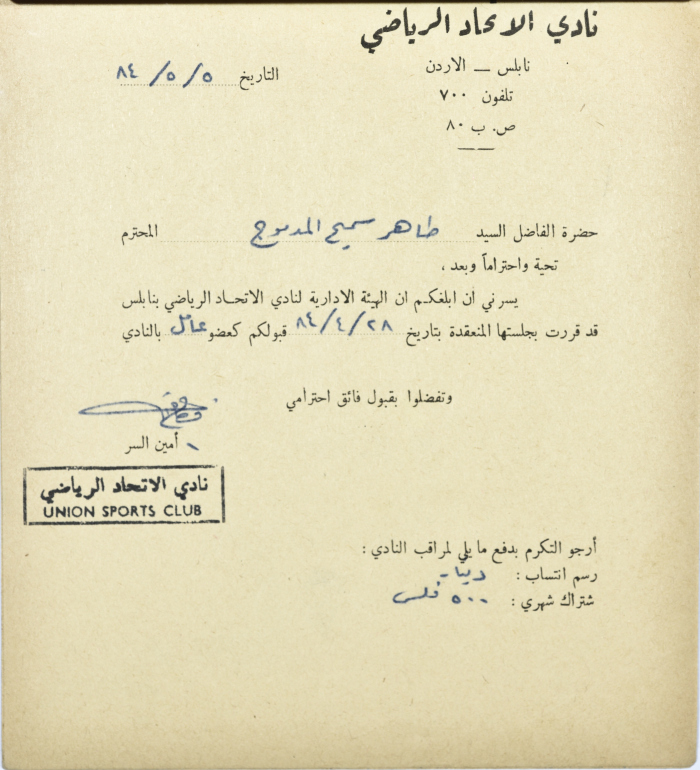 نادي الاتحاد الرياضي
نابلس — الاردن
تلفون ٧٠٠
ص. ب ٨٠
التاريخ ٥/٥/٨٤
حضرة الفاضل السيد طاهر سميح المدموج المحترم
تحية واحتراماً وبعد ،
يسرني ان ابلغكم ان الهيئة الادارية لنادي الاتحاد الرياضي بنابلس
قد قررت بجلستها المنعقدة بتاريخ ٢٨/٤/٨٤ قبولكم كعضو عامل بالنادي
وتفضلوا بقبول فائق احترامي
أمين السر
نادي الاتحاد الرياضي
UNION SPORTS CLUB
أرجو التكرم بدفع ما يلي لمراقب النادي :
رسم انتساب : دينار
شتراك شهري : ٥٠٠ فلس